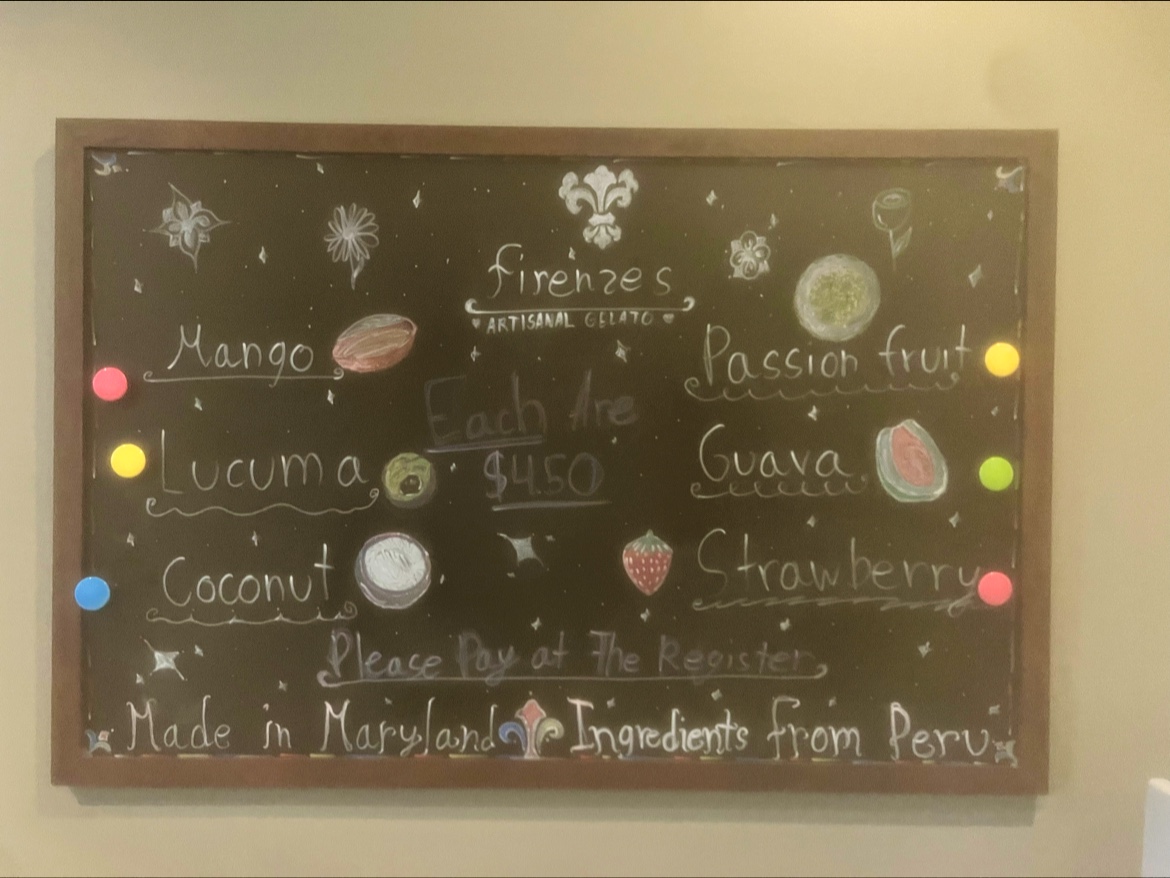 firenzes
ARTISANAL GELATO
Mango
Passion fruit
Each Are
$4.50
Lucuma
Guava
Coconut
Strawberry
Please Pay at The Register
Made in Maryland Ingredients from Peru